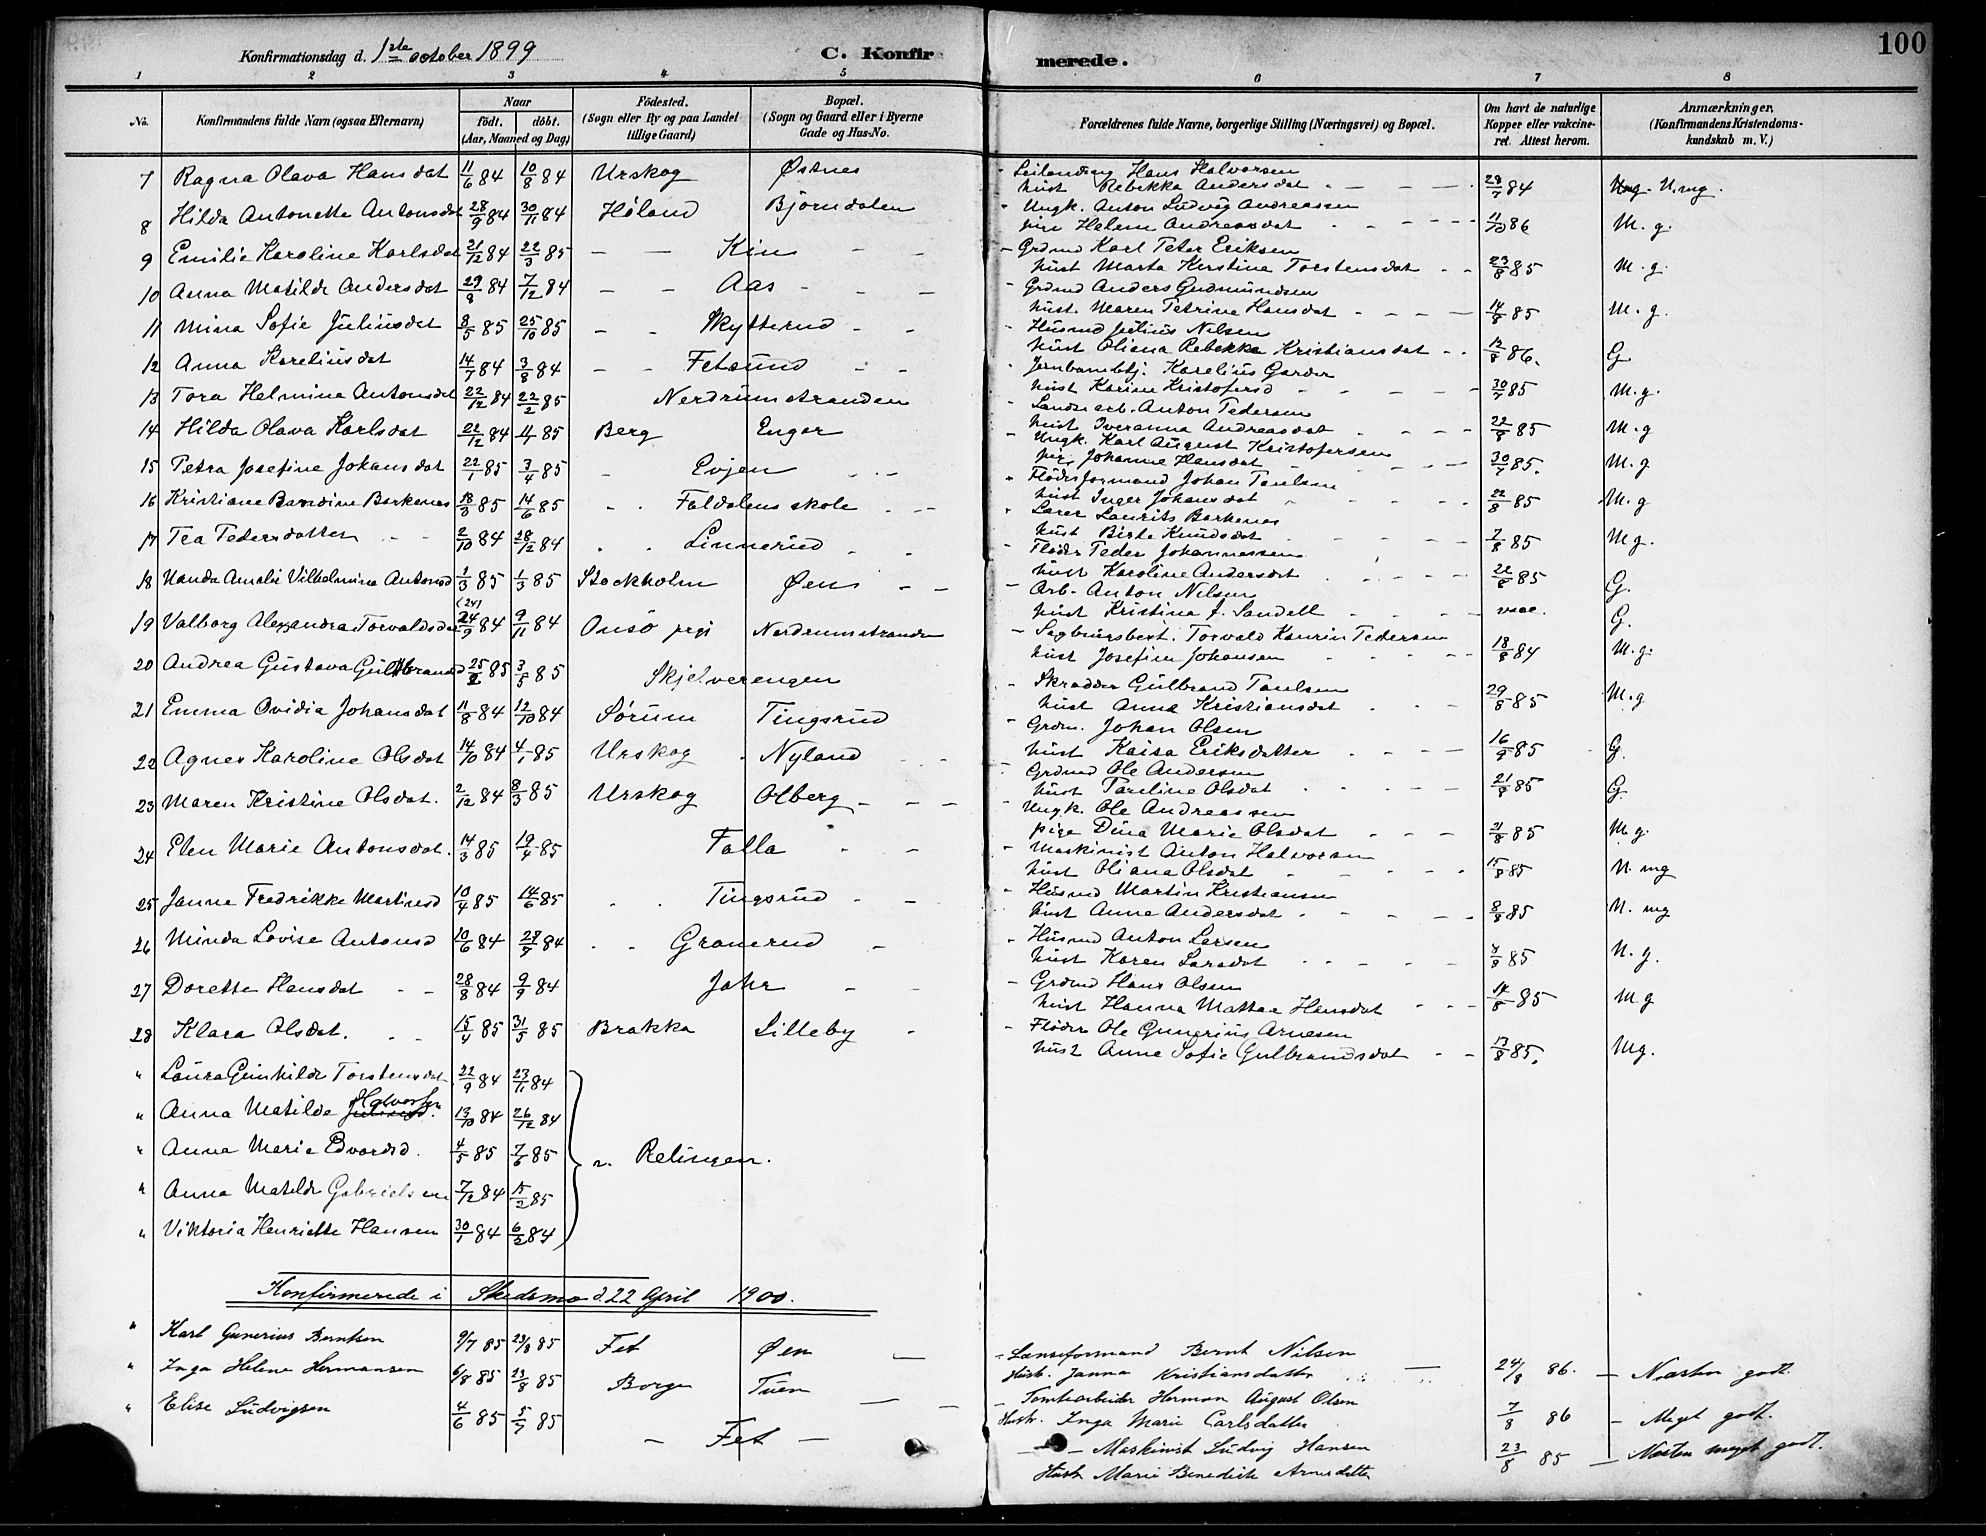 100
Konfirmationsdag d. 1ste october 1899 C. Konfirmerede.
1 2 3 4 5 6 7 8
No. Konfirmandens fulde Navn (ogsaa Efternavn) Naar født. døbt. (Aar, Maaned og Dag) Födested. (Sogn eller By og paa Landet tillige Gaard) Bopæl. (Sogn og Gaard eller i Byerne Gade og Hus-No. Forældrenes fulde Navne, borgerlige Stilling (Næringsvei) og Bopæl. Om havt de naturlige Kopper eller vakcineret. Attest herom. Anmærkninger. (Konfirmandens Kristendomskundskab m. V.)
7 Ragna Olava Hansdat 11/6 84 10/8 84 Urskog Østnes - Leilending Hans Halvorsen
hust Rebekka Andersdat 28/7 84 N.mg.
8 Hilda Antonette Antonsdat 28/9 84 30/11 84 Høland Bjørndalen Ungk. Anton Ludvig Andreassen
pige Helene Andreasdat 11/10 86 M.g.
9 Emilie Karoline Karlsdat 21/12 84 22/3 85 — — Kin - Grdmd Karl Peter Eriksen
hust Marta Kerstine Torstensdat 23/8 85 M.g.
10 Anna Matilde Andersdat 29/8 84 7/12 84 — — Aas - Grdmd Anders Gudmundsen
hust. Maren Petrine Hansdat 14/8 85 M.g.
11 Mina Sofie Juliusdat 8/5 85 25/10 85 — — Skytterud - Husmd Julius Nilsen
hust Oliana Rebekka Kristiansdat 12/8 86. G
12 Anna Kareliusdat 14/7 84 3/8 84 - - Fetsund Jernbanebtj. Karelius Garder
hust Karine Kristofersd 30/7 85 M.g.
13 Tora Helmine Antonsdat 22/12 84 22/2 85 Nerdrumstranden Landsarb. Anton Pedersen
hust Iveranna Andreasdat 22/8 85 M.g
14 Hilda Olava Karlsdat 22/12 84 85 Berg Enger - Ungk. Karl August Kristofersen
pige Johanne Hansdat 30/7 85. M.g
15 Petra Josefine Johansdat 22/1 85 3/4 85 - Evjen Fløderformand Johan Paulsen
hust Inger Johansdat 22/8 85 M.g
16 Kristiane Bardine Barkenes 18/3 85 14/6 85 - - Faldalens skole Lærer Laurits Barkenes
hust Birte Knudsdat 7/8 85 Mg.
17 Tea Pedersdatter 2/10 84 28/12 84 Linnerud Fløder Peder Johannessen
hust Karoline Andersdat 22/8 85 G.
18 Nanda Amalie Vilhelmina Antonsd 1/3 85 1/3 85 Stockholm Øen - Arb. Anton Nilsen
hust Kristina f. Sandell G.
19 Valborg Alexandra Torvaldsdat (24) 24/9 84 9/11 84 Onsø prgj Nerdrumstranden - Sagbrugsbest. Torvald Pedersen
hust Josefine Johansen 18/8 84 M.g.
20 Andrea Gustava Gulbrandsd 25/2 85 3/5 85 Skjelverengen - Skrædder Gulbrand Paulsen
hust Anna Kristiansdat 29/8 85 M.g
21 Emma Ovidia Johansdat 11/8 84 12/10 84 Sørum Tingsrud - Grdm. Johan Olsen
hust Kaisa Eriksdatter 16/9 85 G.
22 Agnes Karoline Olsdat 14/10 84 4/1 85 Urskog Nyland Grdmd Ole Andersen
hust Pauline Olsdat 21/8 85 G.
23 Maren Kristine Olsdat. 2/12 84 8/3 85 Urskog Olberg Ungk. Ole Andreassen
pige Dina Marie Olsdat 21/8 85 M.g.
24 Elen Marie Antonsdat. 14/3 85 19/4 85 Falla - Maskinist Anton Halvorsen
hust Oliana Olsdat 15/8 85 N.mg
25 Janna Fredrikke Martinsd 10/4 85 14/6 85 Tingsrud - Husmd Martin Kristiansen
hust Anne Andersdat 8/8 85 N.mg
26 Minda Lovise Antonsd 10/6 84 27/7 84 Granerud - Husmd Anton Larsen
hust Karen Larsdat 85 N.g.
27 Dorette Hansdat 28/8 84 9/9 84 Jahr - Grdmd Hans Olsen
hust Hanna Mattea Hansdat 14/8 85 Mg
28 Klara Olsdat. 15/4 85 31/5 85 Brakka Lilleby - Fløder Ole Gunerius Arnesen
hust Anne Sofie Gulbrandsdat 13/8 85. Mg.
" Laura Gunhilde Torstensdat 22/9 84 23/11 84
" Anna Matilde Halvorsen 13/10 84 26/12 84
" Anna Marie Edvardsd. 4/5 85 7/6 85 n. Relingen.
" Anna Matilde Gabrielsen 7/12 84 15/2 85
" Viktoria Henriette Hansen 30/1 84 6/2 84
Konfirmerede i Skedsmo d. 22 April 1900.
" Karl Gunerius Berntsen 9/7 85 23/8 85 Fet Øen — - Lænseformand Bernt Nilsen
Hust. Janna Kristiansdatter 24/8 86. — Næsten godt.
" Inga Helene Hermansen 6/8 85 23/8 85 Borge Tuen — Tomtearbeider Herman August Olsen
Hust. Inga Marie Carlsdatter 7/8 86 - Meget godt.
" Elise Ludvigsen 4/6 85 5/7 85 — Fet — - Maskinist Ludvig Hansen
Hust Marie Benedikte Arnesdatter 23/8 85 — Næsten meget godt.